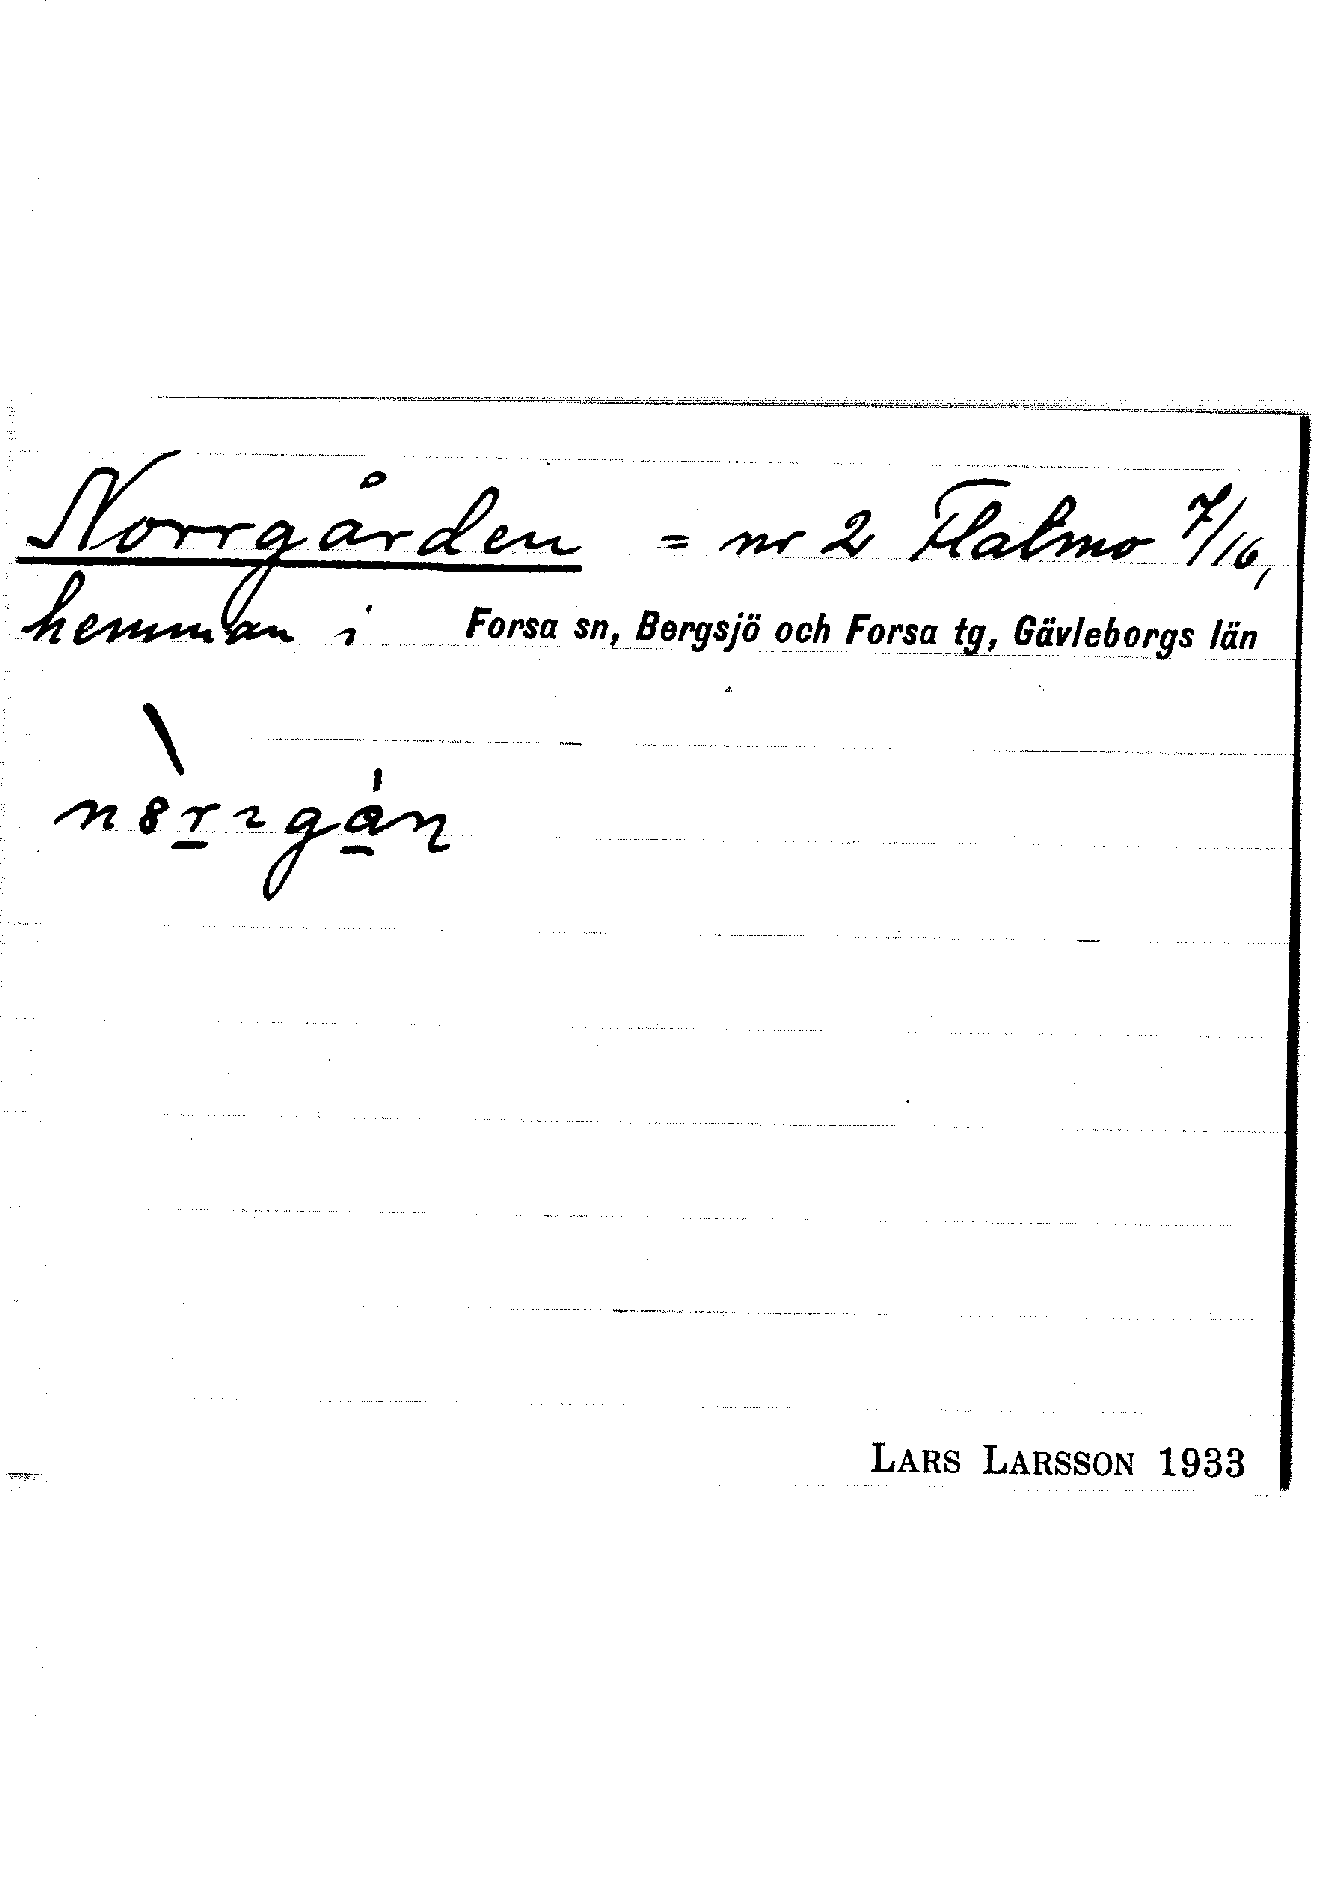 Norrgården = nr 2 Flatmo 7/16,
hemman i Forsa sn, Bergsjö och Forsa tg, Gävleborgs län
LARS LARSSON 1933